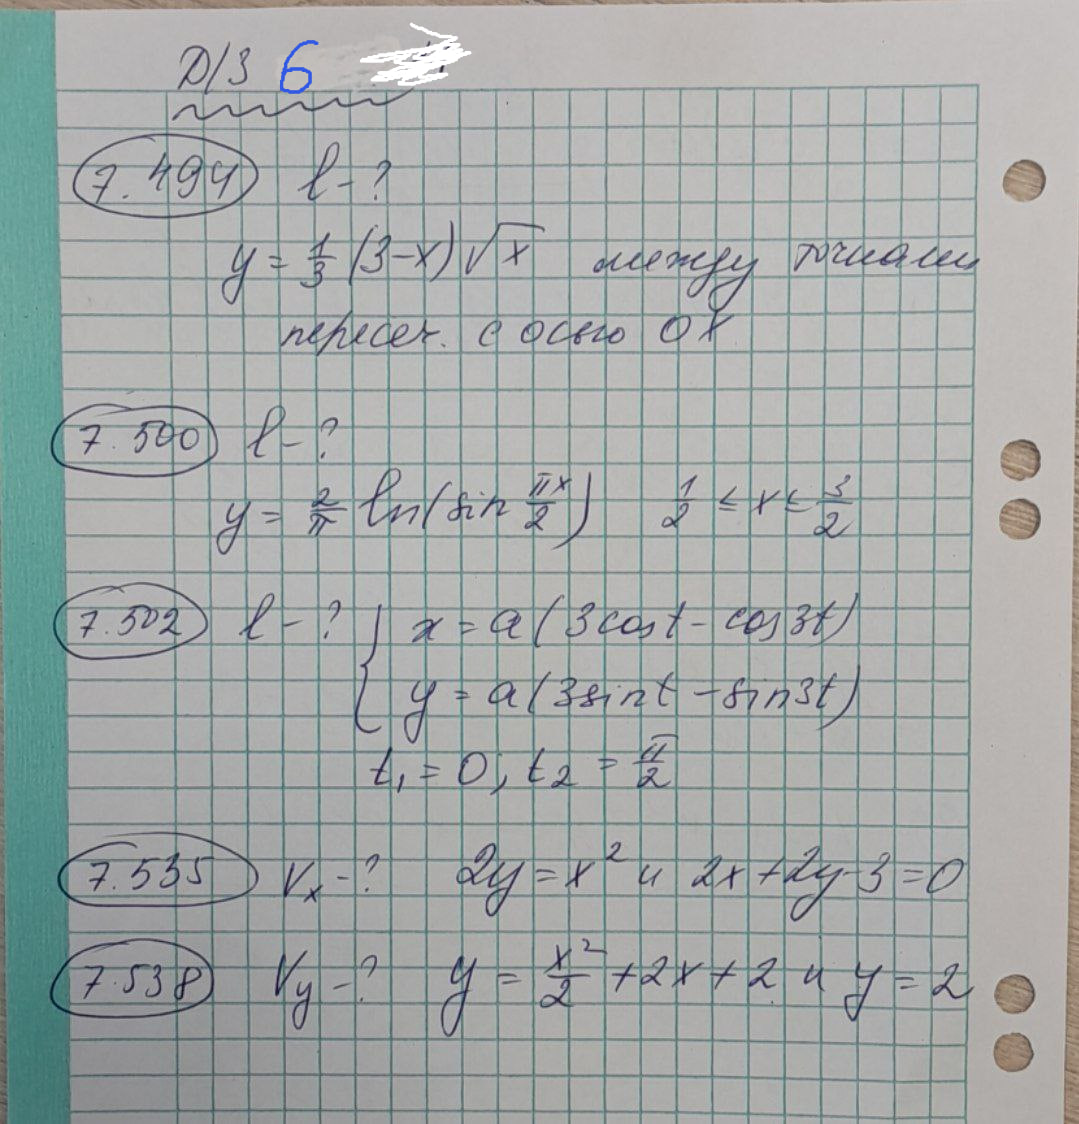 Д/З 6
7.494 l-?
y = 1/3 (3-x)√x между точками
пересеч. с осью OX
7.500 l-?
y = 2/π ln(sin πx/2) 1/2 ≤ x ≤ 3/2
7.502 l-? { x = a(3cost - cos3t)
y = a(3sint - sin3t)
t₁ = 0; t₂ = π/2
7.535 Vₓ-? 2y = x² и 2x+2y-3=0
7.538 Vy-? y = x²/2 + 2x + 2 и y = 2